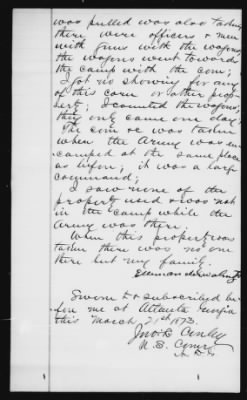 was pulled was also taken
there were officers & men
with guns with the wagons
the wagons went towards
the camp with the corn;
I got no showing for any
of this corn or other prop-
erty; I counted the wagons;
they only came one day.
The corn &c was taken
when the Army was en-
camped at the same place
as before; it was a large
command;
I saw none of the
property used & was not
in the camp while the
Army was there.
When this property was
taken there was no one
there but my family.
Sworn to & subscribed be-
fore me at Atlanta Georgia
this March 21st 1873.
Jno. B. Conley
U. S. Comr